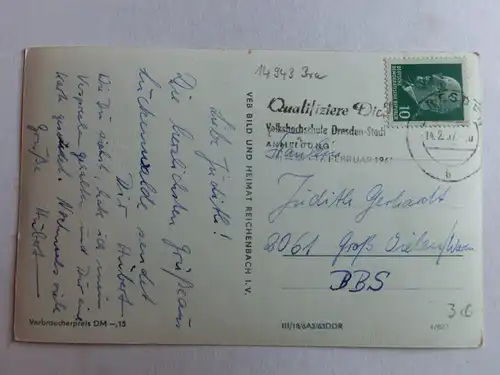 Liebe Judith!
Die herzlichsten Grüße aus
Lückenwalde sendet
Dir Hubert
Wie Du siehst, habe ich mein
Versprechen gehalten und Dir eine
Karte gesendet. Nochmals viele
Grüße Hubert
Verbraucherpreis DM -,15
VEB BILD UND HEIMAT REICHENBACH I. V.
14943
Qualifiziere Dich
Volkshochschule Dresden-Stadt
ANMELDUNG
FEBRUAR
10
14.2.
b
Judith Gerhardt
8061 Groß
BBS
III/18/6A3/63DDR